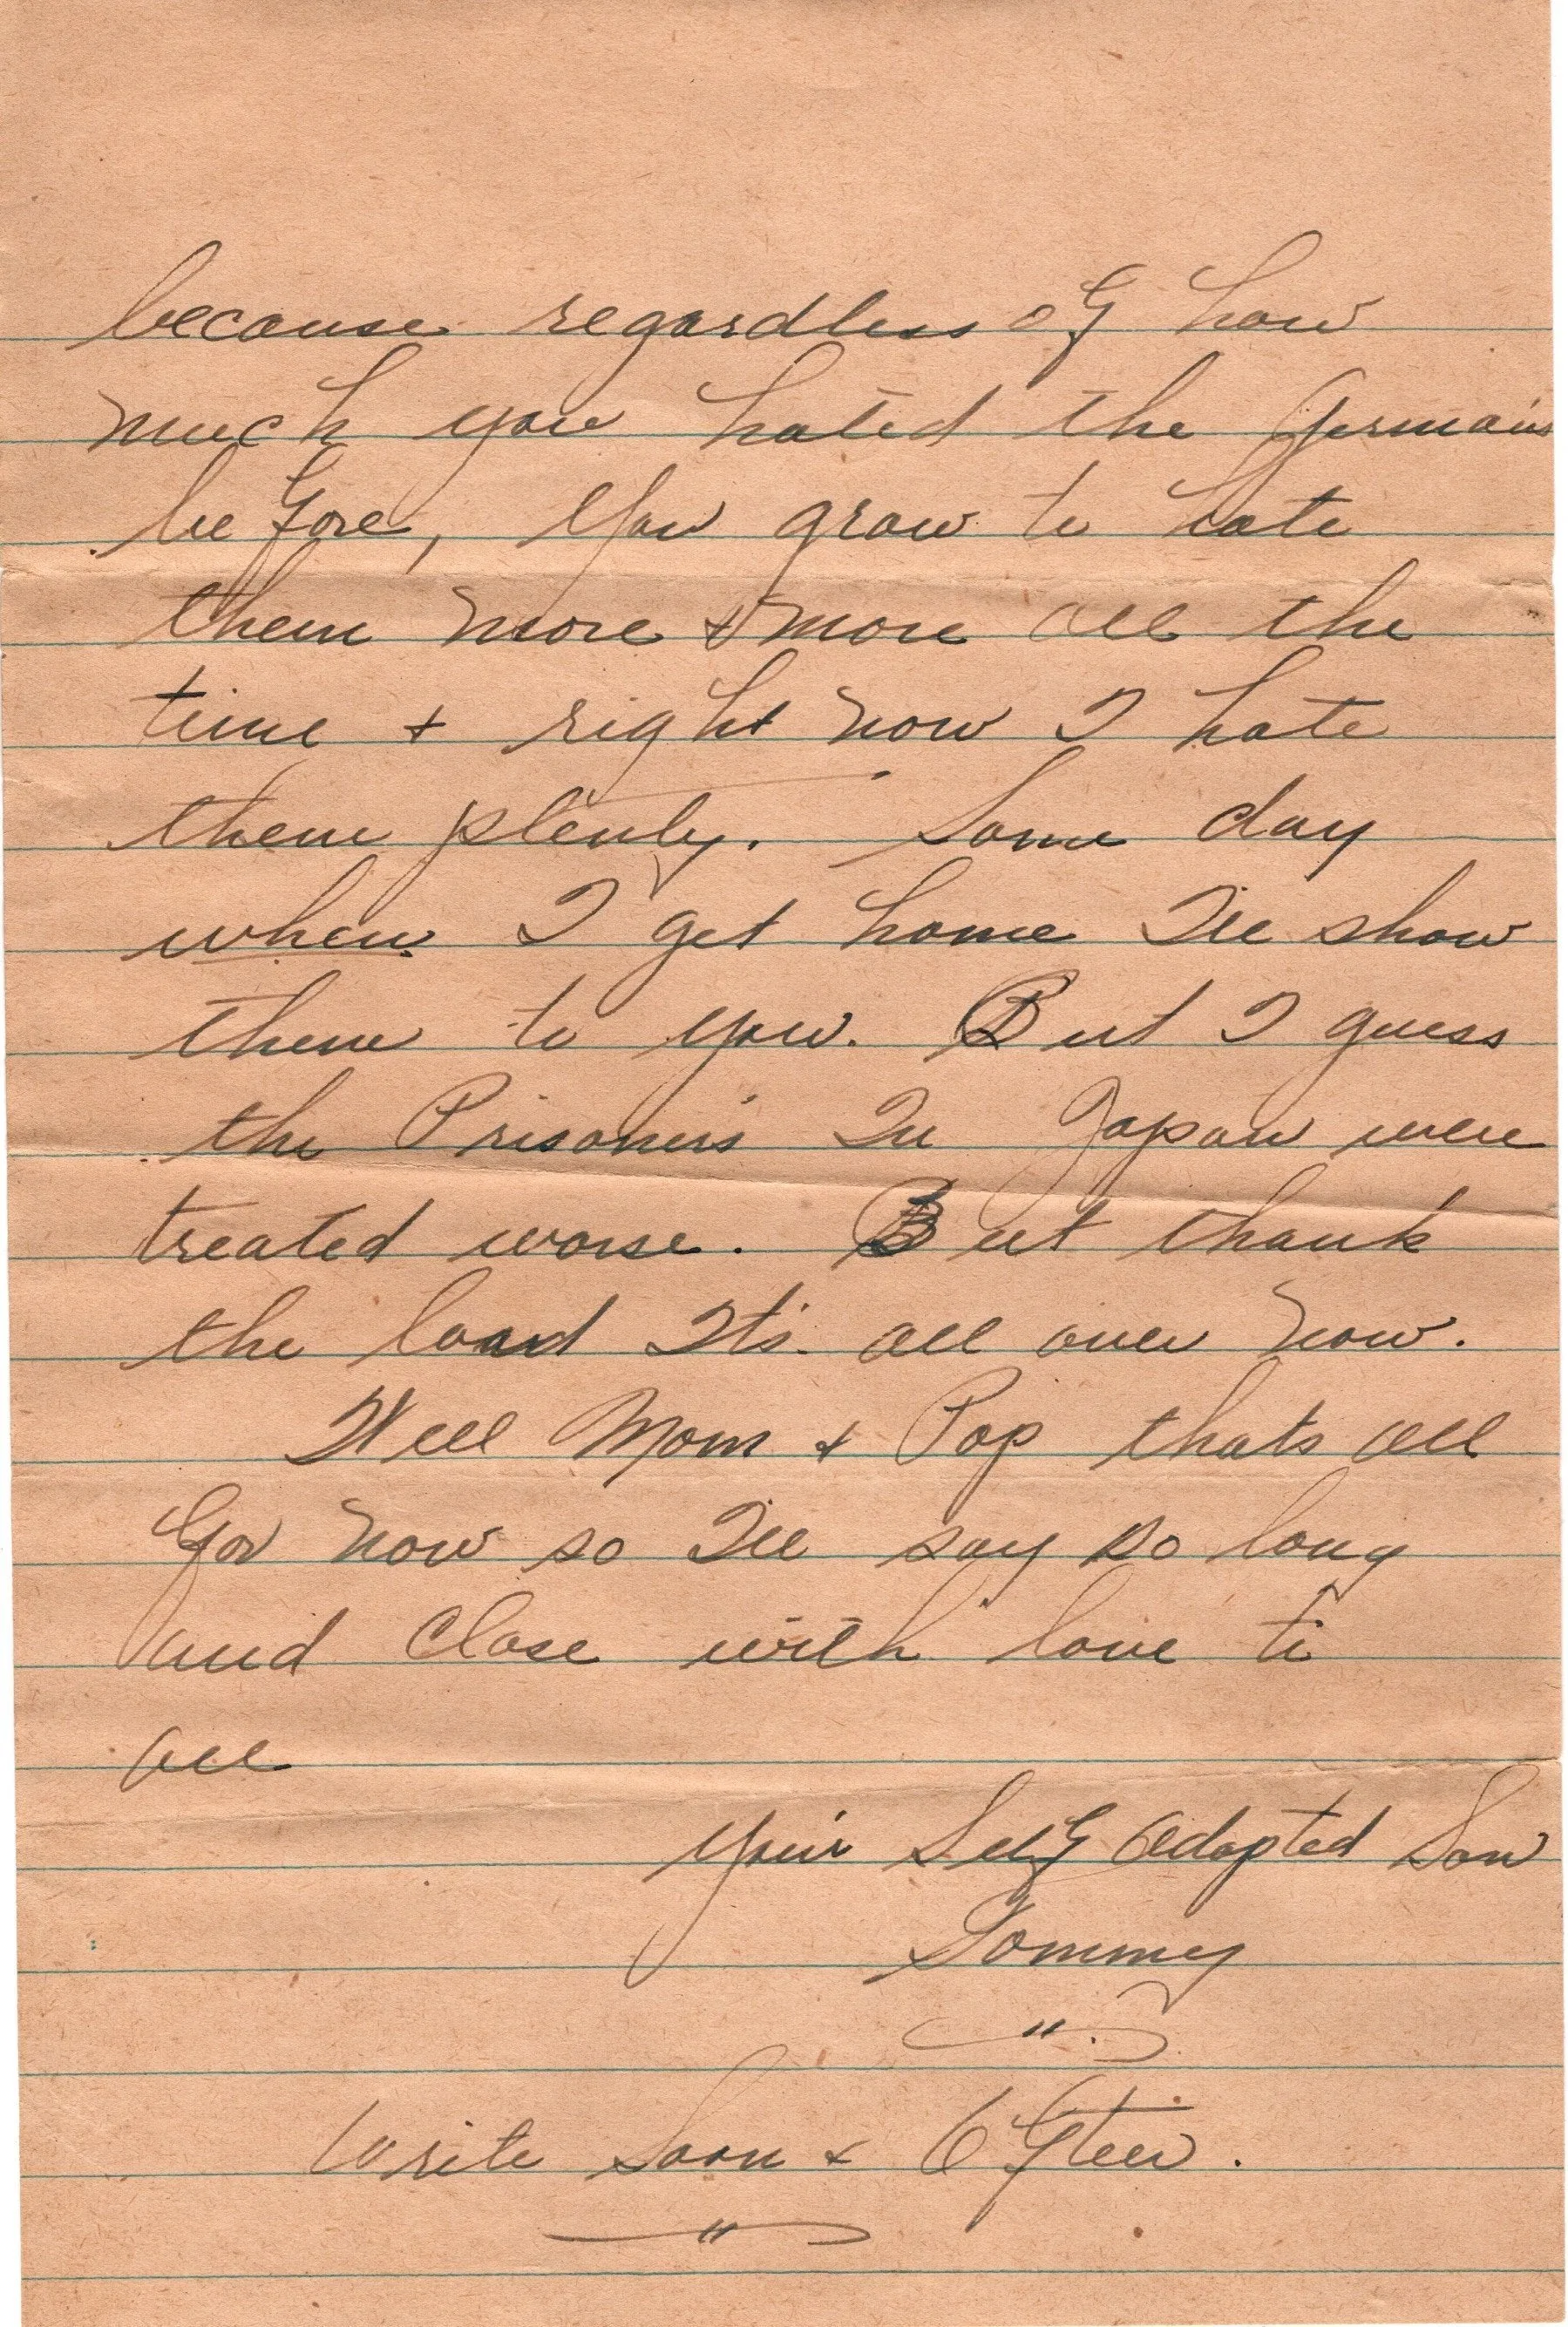 because regardless of how
much you hated the Germans
before, you grow to hate
them more & more all the
time & right now I hate
them plenty. Some day
when I get home I'll show
them to you. But I guess
the Prisoners In Japan were
treated worse. But thank
the lord It's all over now.
Well Mom & Pop thats all
for now so I'll say so long
and close with love to
all
Your Self Adopted Son
Tommy
Write Soon & Often.